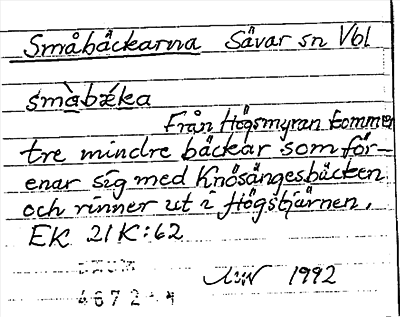 Småbäckarna Sävar sn Vbl
småbǽka
Från Högsmyran kommer
tre mindre bäckar som för-
enar sig med Knösängesbäcken
och rinner ut i Högstjärnen.
EK 21K:62
1992